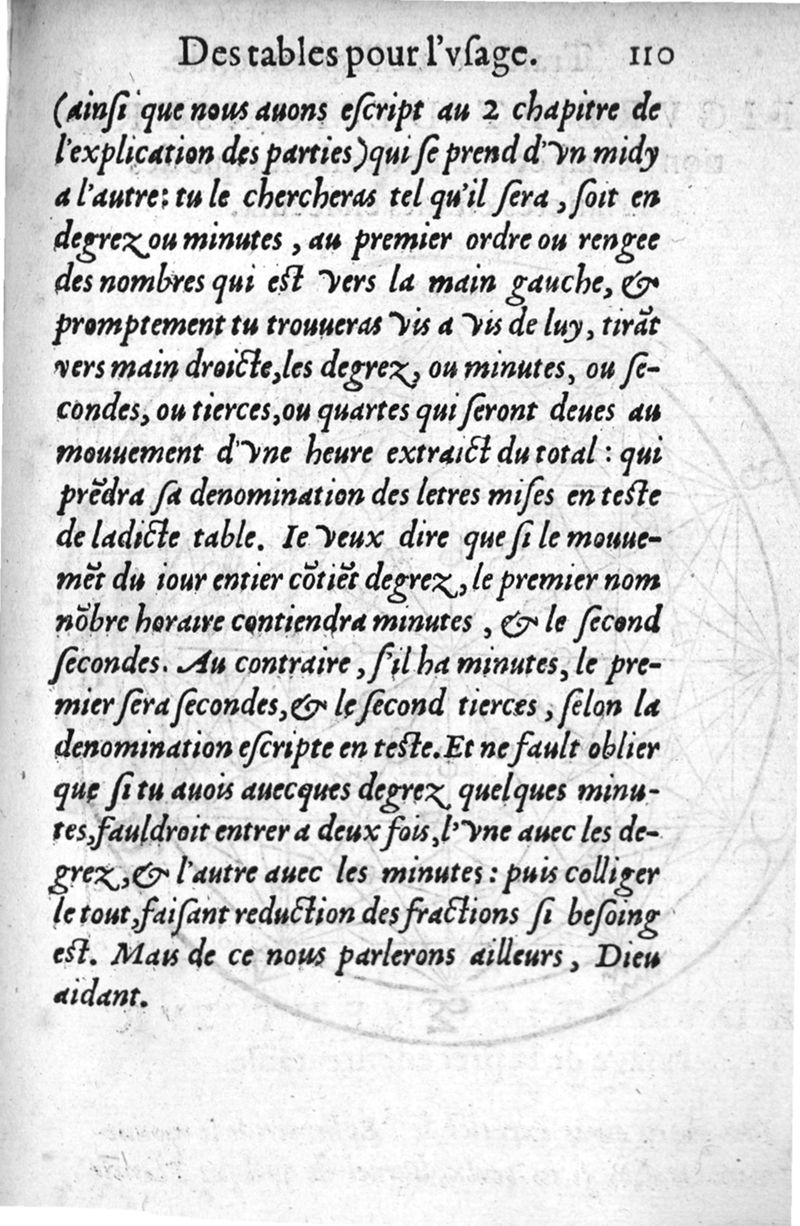 Des tables pour l'vſage. 110
(ainſi que nous auons eſcript au 2 chapitre de
l'explication des parties) qui ſe prend d'vn midy
a l'autre: tu le chercheras tel qu'il ſera, ſoit en
degrez ou minutes, au premier ordre ou rengee
des nombres qui eſt vers la main gauche, &
promptement tu trouueras vis a vis de luy, tirāt
vers main droicte, les degrez, ou minutes, ou ſe-
condes, ou tierces, ou quartes qui ſeront deues au
mouuement d'vne heure extraict du total: qui
prēdra ſa denomination des letres miſes en teſte
de ladicte table. Ie veux dire que ſi le mouue-
mēt du iour entier cōtiēt degrez, le premier nom
nōbre horaire contiendra minutes, & le ſecond
ſecondes. Au contraire, ſ'il ha minutes, le pre-
mier ſera ſecondes, & le ſecond tierces, ſelon la
denomination eſcripte en teſte. Et ne fault oblier
que ſi tu auois auecques degrez quelques minu-
tes, fauldroit entrer a deux fois, l'vne auec les de-
grez, & l'autre auec les minutes: puis colliger
le tout, faiſant reduction des fractions ſi beſoing
eſt. Mais de ce nous parlerons ailleurs, Dieu
aidant.